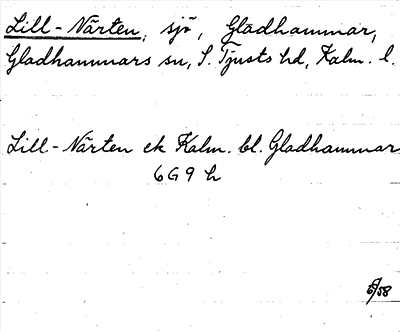 Lill-Nårten, sjö, Gladhammar,
Gladhammars sn, S. Tjusts hd, Kalm. l.
Lill-Nårten ek Kalm. bl. Gladhammar
6G9h